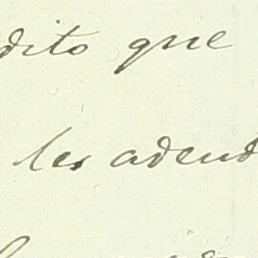 dito que
les adeud